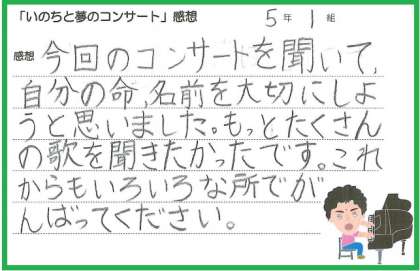 「いのちと夢のコンサート」感想 5年 1組
感想 今回のコンサートを聞いて、
自分の命、名前を大切にしよ
うと思いました。もっとたくさん
の歌を聞きたかったです。これ
からもいろいろな所でが
んばってください。